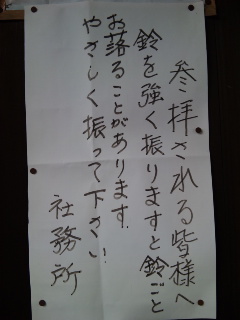 参拝される皆様へ
鈴を強く振りますと鈴ごと
お落ることがあります.
やさしく振って下さい.
社務所